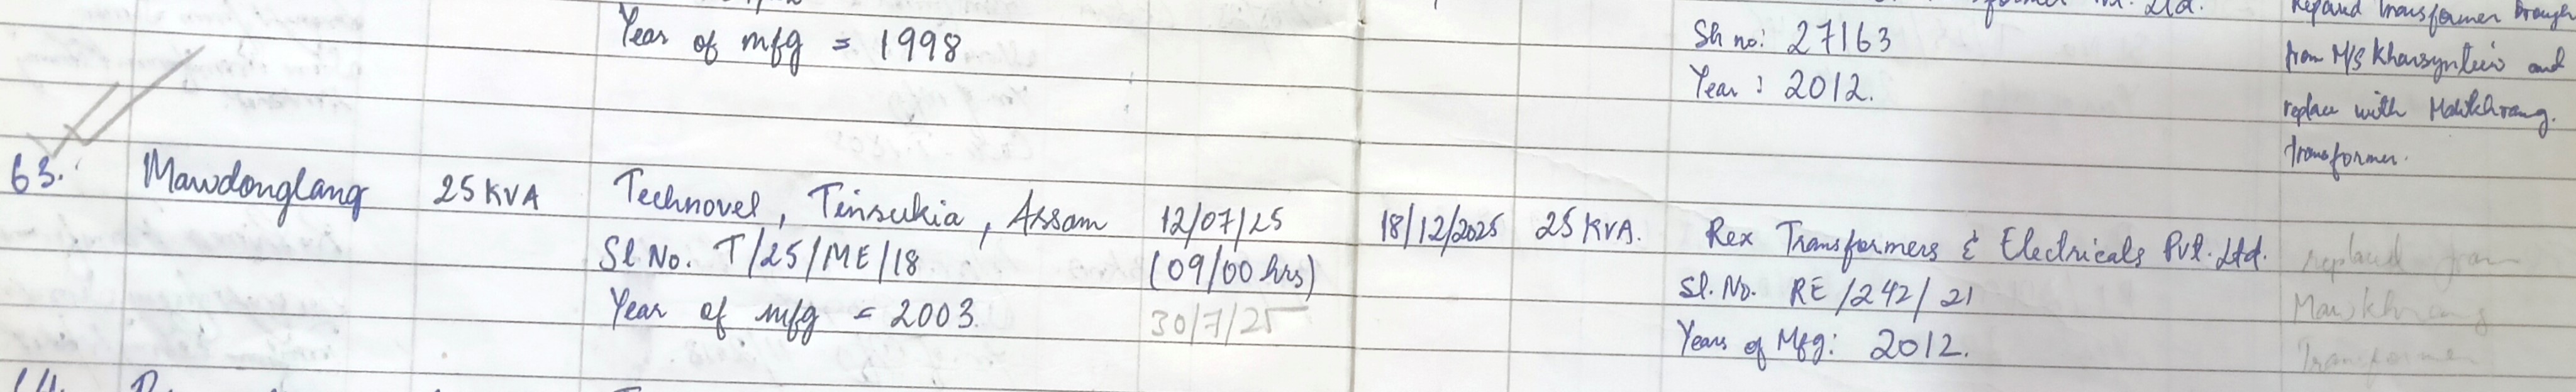 Year of mfg = 1998
Sh no: 27163
Year : 2012.
Transformer brough
from M/S Kharsyntiew and
replace with Mawkhrang.
transformer.
63. Mawdonglang 25 KVA Technovel, Tinsukia, Assam 12/07/25 18/12/2025 25 KVA. Rex Transformers & Electricals Pvt. Ltd. replaced from
Sl. No. T/25/ME/18 (09/00 hrs) Sl. No. RE/242/21 Mawkhrang
Year of mfg = 2003. 30/7/25 Years of Mfg: 2012. Transformer